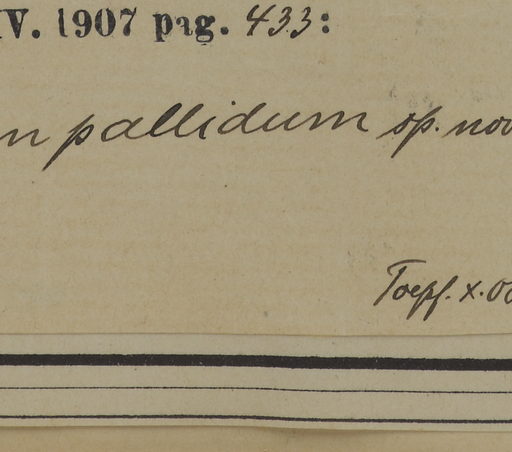 IV. 1907 pag. 433:
n pallidum sp. nov
Toepf. x.00